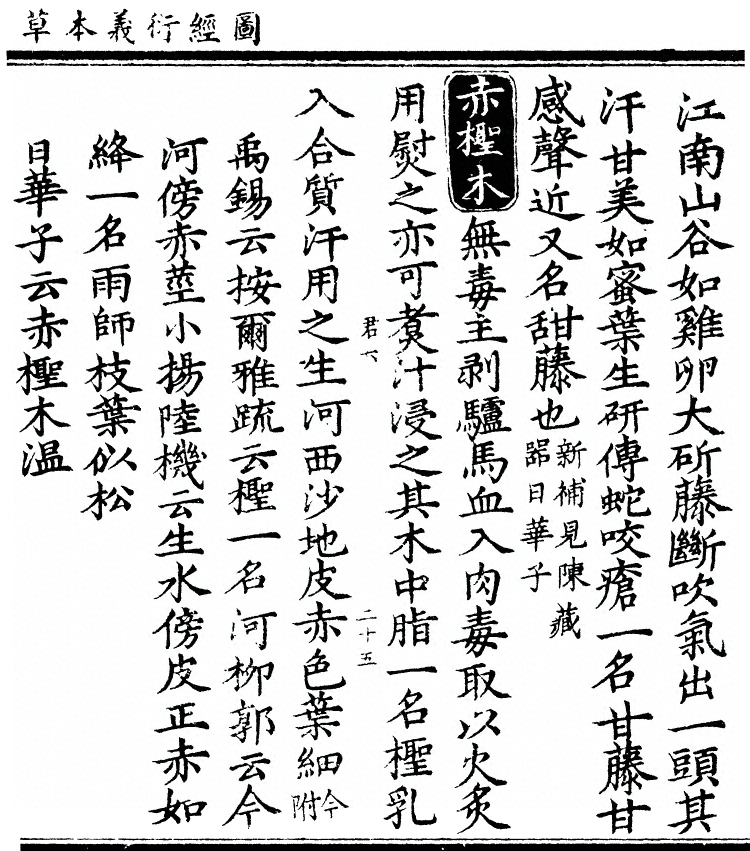 圖經衍義本草
江南山谷如雞卵大斫藤斷吹氣出一頭其
汗甘美如蜜葉生研傅蛇咬瘡一名甘藤甘
感聲近又名甜藤也新補見陳藏噐日華子
赤檉木無毒主剥驢馬血入肉毒取以火炙
用熨之亦可煑汁浸之其木中脂一名檉乳
君六 二十五
入合質汗用之生河西沙地皮赤色葉細今附
禹錫云按爾雅疏云檉一名河柳郭云今
河傍赤莖小揚陸機云生水傍皮正赤如
絳一名雨師枝葉似松
日華子云赤檉木温